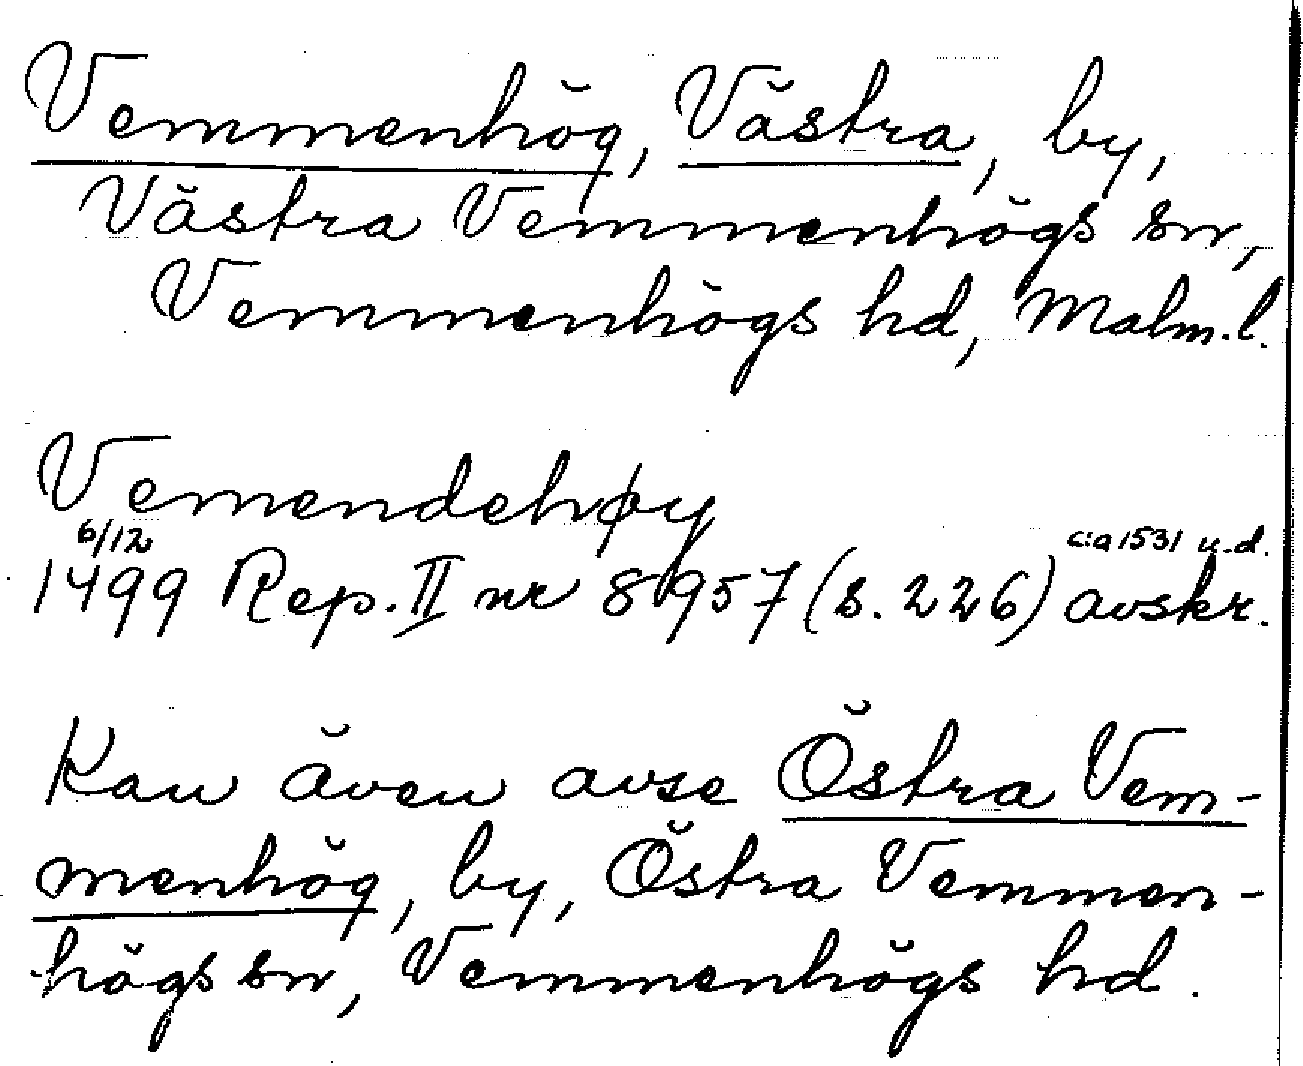 Vemmenhög, Västra, by,
Västra Vemmenhögs sn,
Vemmenhögs hd, Malm.l.
Vemendehøy
6/12 c:a 1531 u.d.
1499 Rep. II nr 8957 (s. 226) avskr.
Kan även avse Östra Vem-
menhög, by, Östra Vemmen-
högs sn, Vemmenhögs hd.